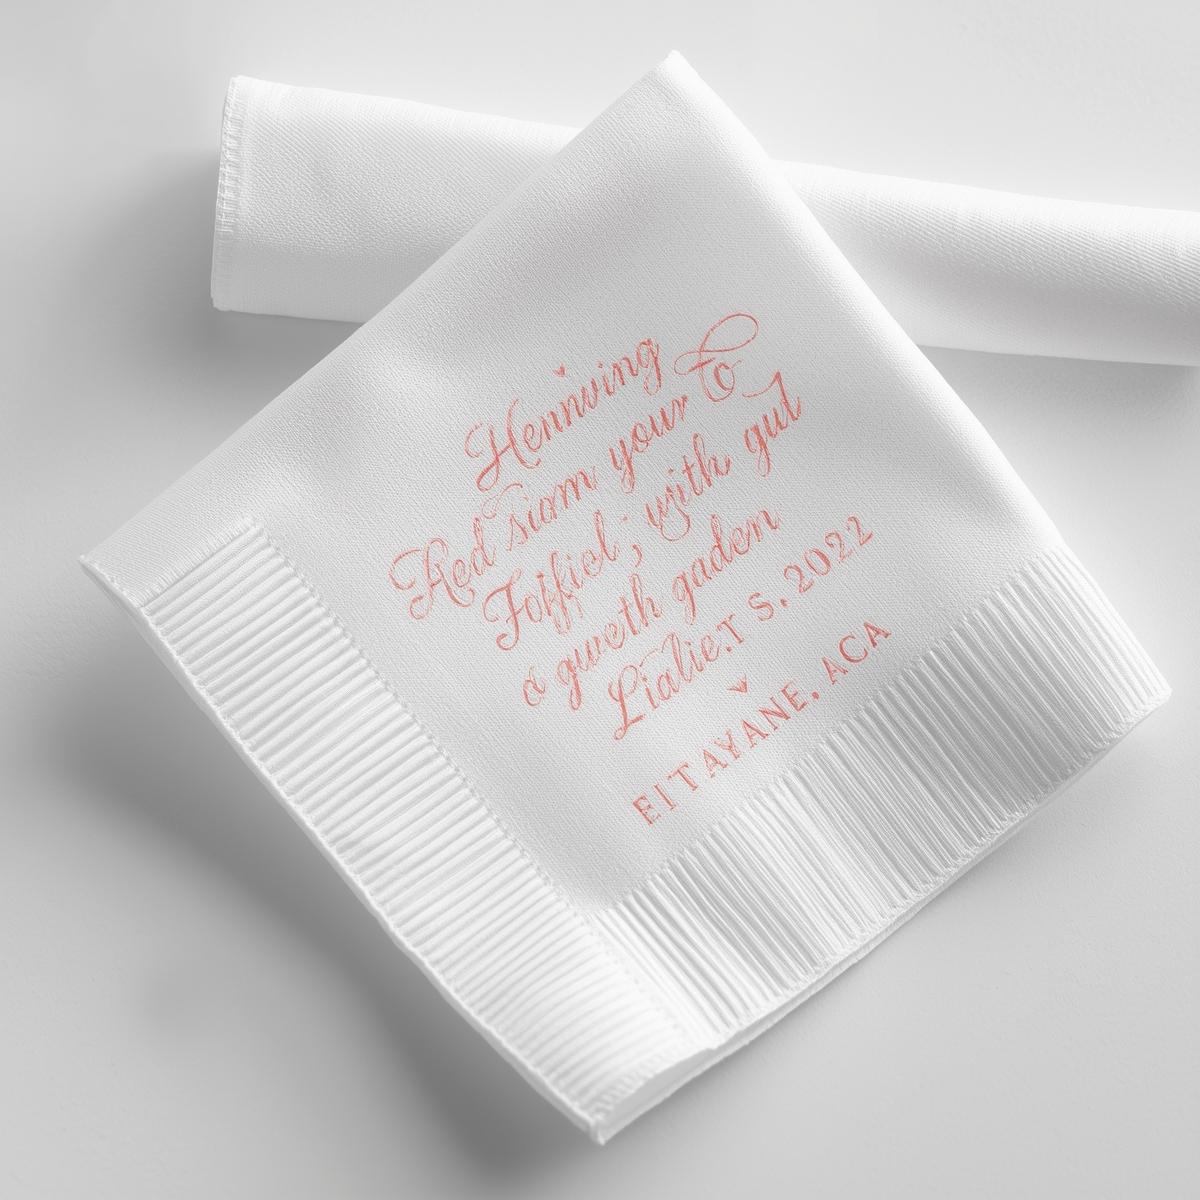 Hennving
Aed siom your to
Foffiel; with gul
a gweth gaden
Lialie.T S. 2022
EITAYANE, ACA